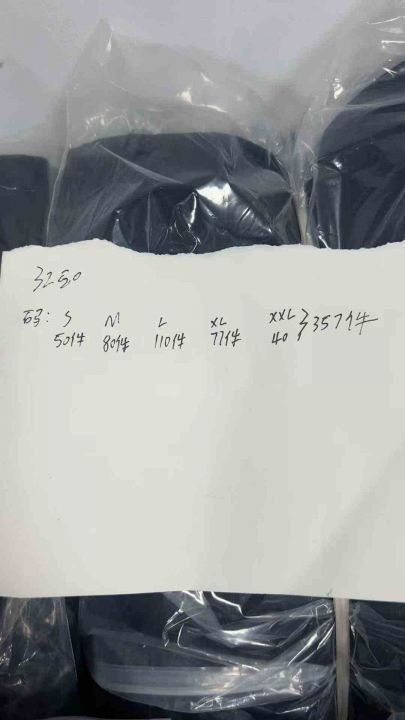 3250
码: S M L XL XXL
50件 80件 110件 77件 40 } 357件